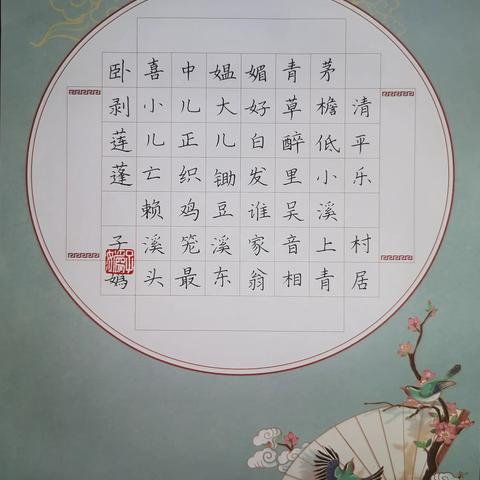 清平乐 村居
茅檐低小溪上青
青草醉里吴音相
媚好白发谁家翁
媪大儿锄豆溪东
中儿正织鸡笼最
喜小儿亡赖溪头
卧剥莲蓬 子